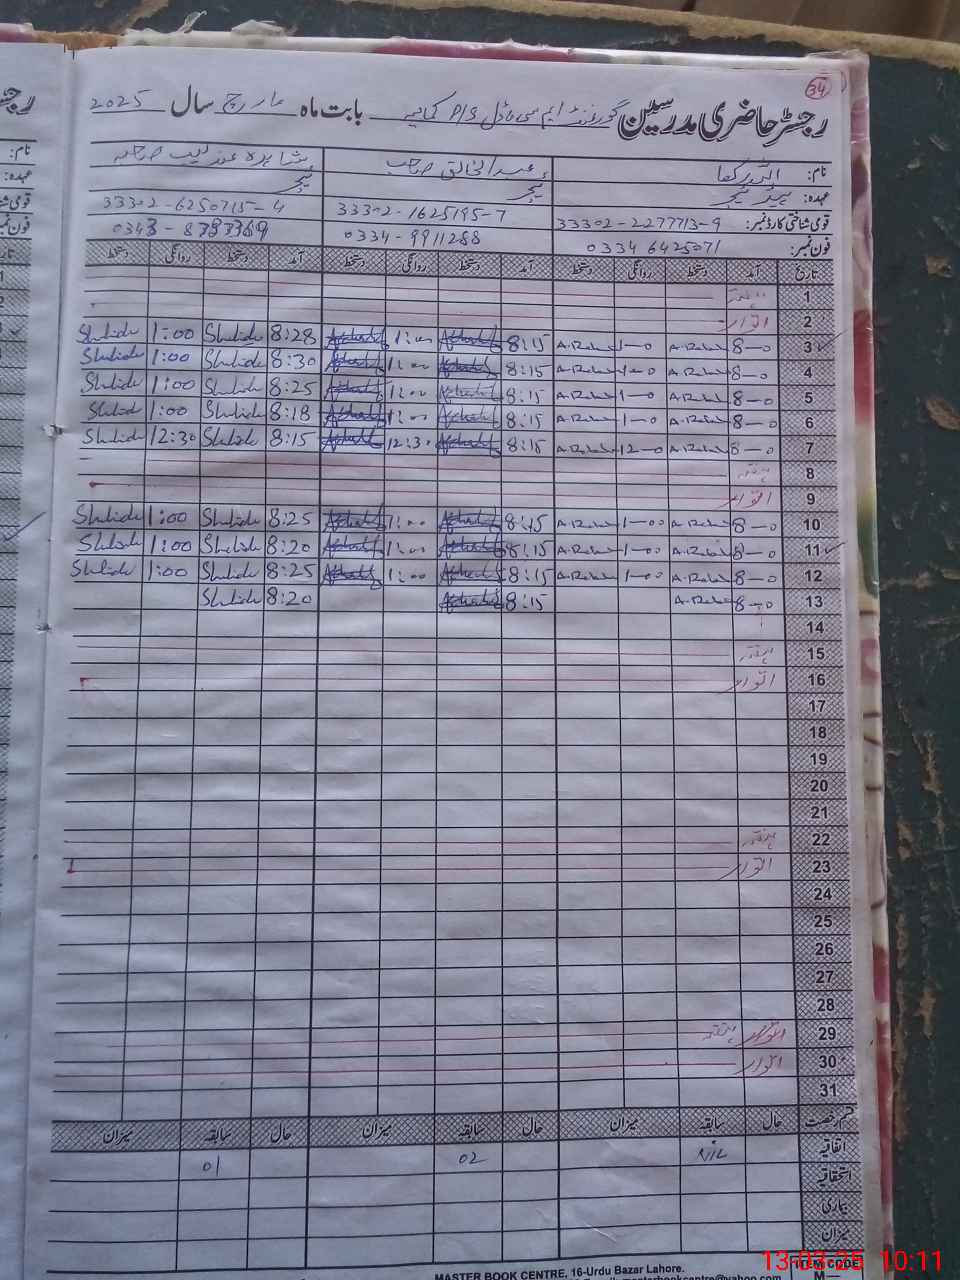 34
رجسٹر حاضری مدرسین گورنمنٹ ایم سی ماڈل P/S کمالیہ بابت ماہ مارچ سال 2025
نام: اللہ رکھا عبدالخالق صاحب شاہدہ عندلیب صاحبہ
عہدہ: ہیڈ ٹیچر ٹیچر ٹیچر
قومی شناختی کارڈ نمبر: 33302-2277713-9 33302-1625195-7 33302-6250715-4
فون نمبر: 0334 6425071 0334-9911288 0343-8393369
تاریخ آمد دستخط روانگی دستخط آمد دستخط روانگی دستخط آمد دستخط روانگی دستخط
1 ہفتہ
2 اتوار
3 8-0 1-0 8:15 1:00 8:28 Shahida 1:00 Shahida
4 8-0 1-0 8:15 1:00 8:30 Shahida 1:00 Shahida
5 8-0 1-0 8:15 1:00 8:25 Shahida 1:00 Shahida
6 8-0 1-0 8:15 1:00 8:18 Shahida 1:00 Shahida
7 8-0 12-0 8:15 12:30 8:15 Shahida 12:30 Shahida
8 ہفتہ
9 اتوار
10 8-0 1-00 8:15 1:00 8:25 Shahida 1:00 Shahida
11 8-0 1-00 8:15 1:00 8:20 Shahida 1:00 Shahida
12 8-0 1-00 8:15 1:00 8:25 Shahida 1:00 Shahida
13 8-0 8:15 8:20 Shahida
14
15 ہفتہ
16 اتوار
17
18
19
20
21
22 ہفتہ
23 اتوار
24
25
26
27
28
29 ہفتہ
30 اتوار
31
قسم رخصت حال سابقہ میزان حال سابقہ میزان حال سابقہ میزان
اتفاقیہ Nil 02 01
استحقاقیہ
بیماری
میزان
MASTER BOOK CENTRE, 16-Urdu Bazar Lahore.
ITEM CODE
M—
13-03-25 10:11